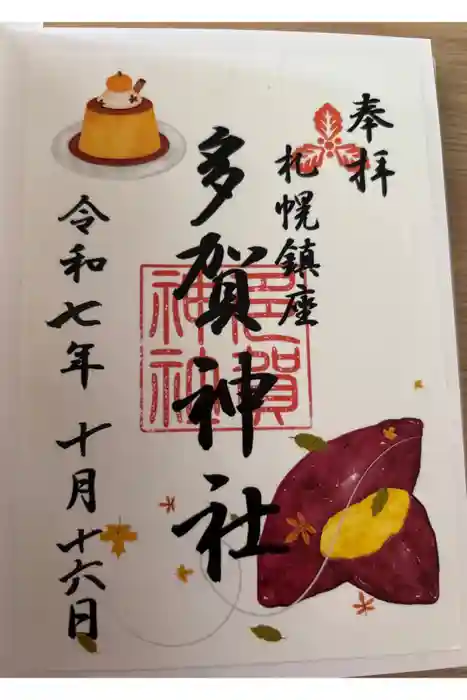 奉拝
札幌鎮座
多賀神社
多賀神社
令和七年 十月十六日